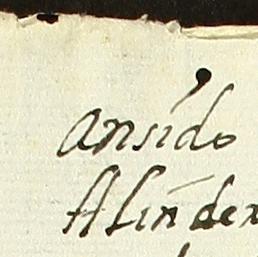 ansido
Alinder